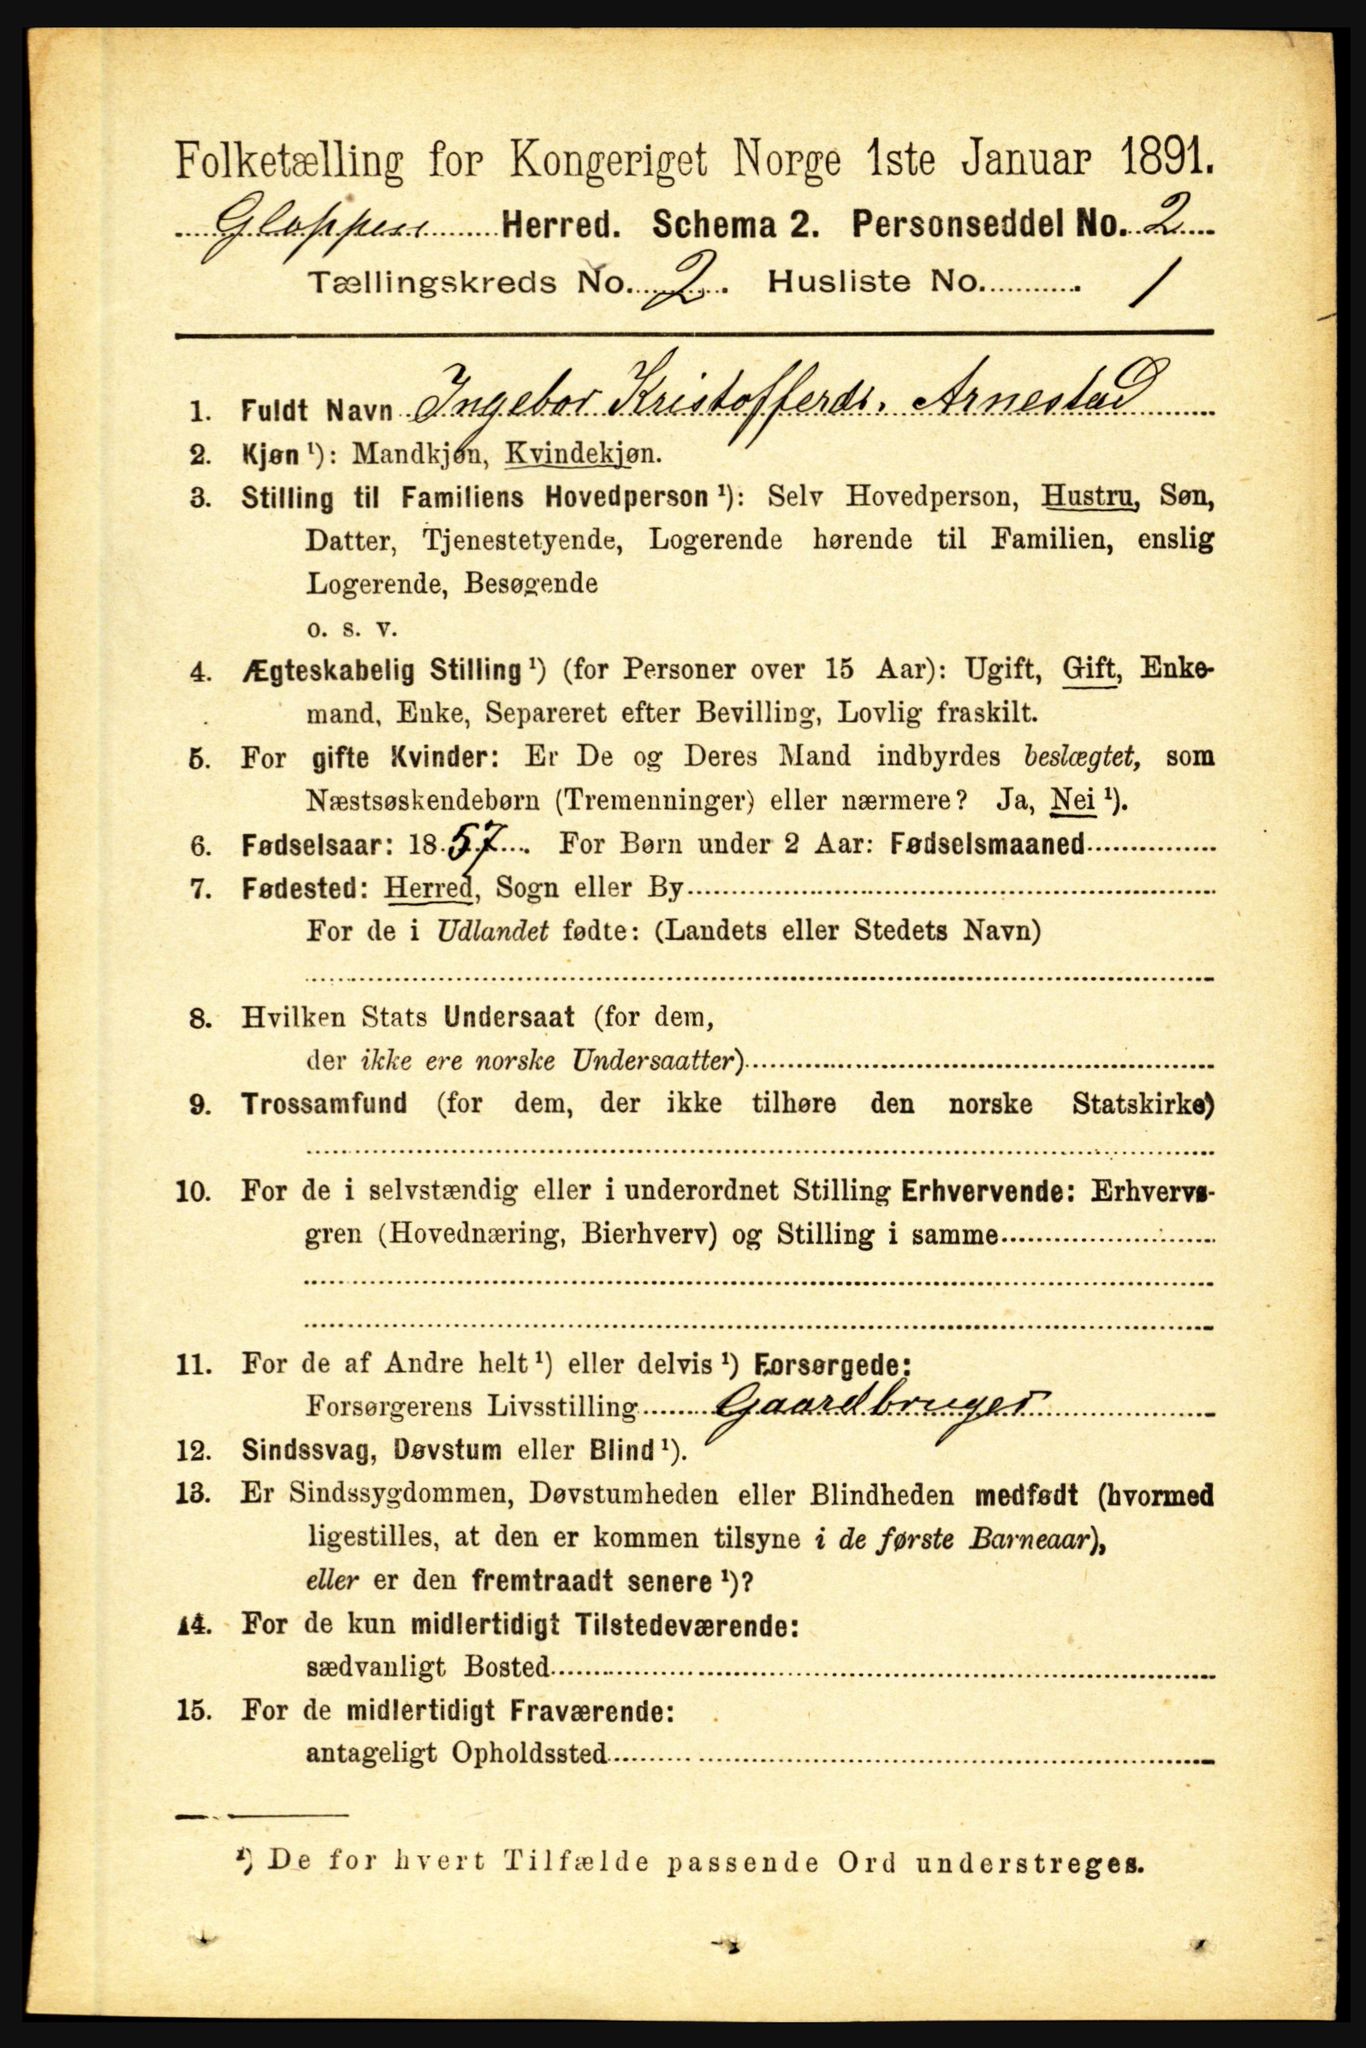 Folketælling for Kongeriget Norge 1ste Januar 1891.
Gloppen Herred. Schema 2. Personseddel No. 2
Tællingskreds No. 2. Husliste No. 1
1. Fuldt Navn Ingebor Kristofferds. Arnestad
2. Kjøn ¹): Mandkjøn, Kvindekjøn.
3. Stilling til Familiens Hovedperson ¹): Selv Hovedperson, Hustru, Søn,
Datter, Tjenestetyende, Logerende hørende til Familien, enslig
Logerende, Besøgende
o. s. v.
4. Ægteskabelig Stilling ¹) (for Personer over 15 Aar): Ugift, Gift, Enke-
mand, Enke, Separeret efter Bevilling, Lovlig fraskilt.
5. For gifte Kvinder: Er De og Deres Mand indbyrdes beslægtet, som
Næstsøskendebørn (Tremenninger) eller nærmere? Ja, Nei ¹).
6. Fødselsaar: 1857. For Børn under 2 Aar: Fødselsmaaned
7. Fødested: Herred, Sogn eller By
For de i Udlandet fødte: (Landets eller Stedets Navn)
8. Hvilken Stats Undersaat (for dem,
der ikke ere norske Undersaatter)
9. Trossamfund (for dem, der ikke tilhøre den norske Statskirke)
10. For de i selvstændig eller i underordnet Stilling Erhvervende: Erhvervs-
gren (Hovednæring, Bierhverv) og Stilling i samme
11. For de af Andre helt ¹) eller delvis ¹) Forsørgede:
Forsørgerens Livsstilling Gaardbruger
12. Sindssvag, Døvstum eller Blind ¹).
13. Er Sindssygdommen, Døvstumheden eller Blindheden medfødt (hvormed
ligestilles, at den er kommen tilsyne i de første Barneaar),
eller er den fremtraadt senere ¹)?
14. For de kun midlertidigt Tilstedeværende:
sædvanligt Bosted
15. For de midlertidigt Fraværende:
antageligt Opholdssted
¹) De for hvert Tilfælde passende Ord understreges.